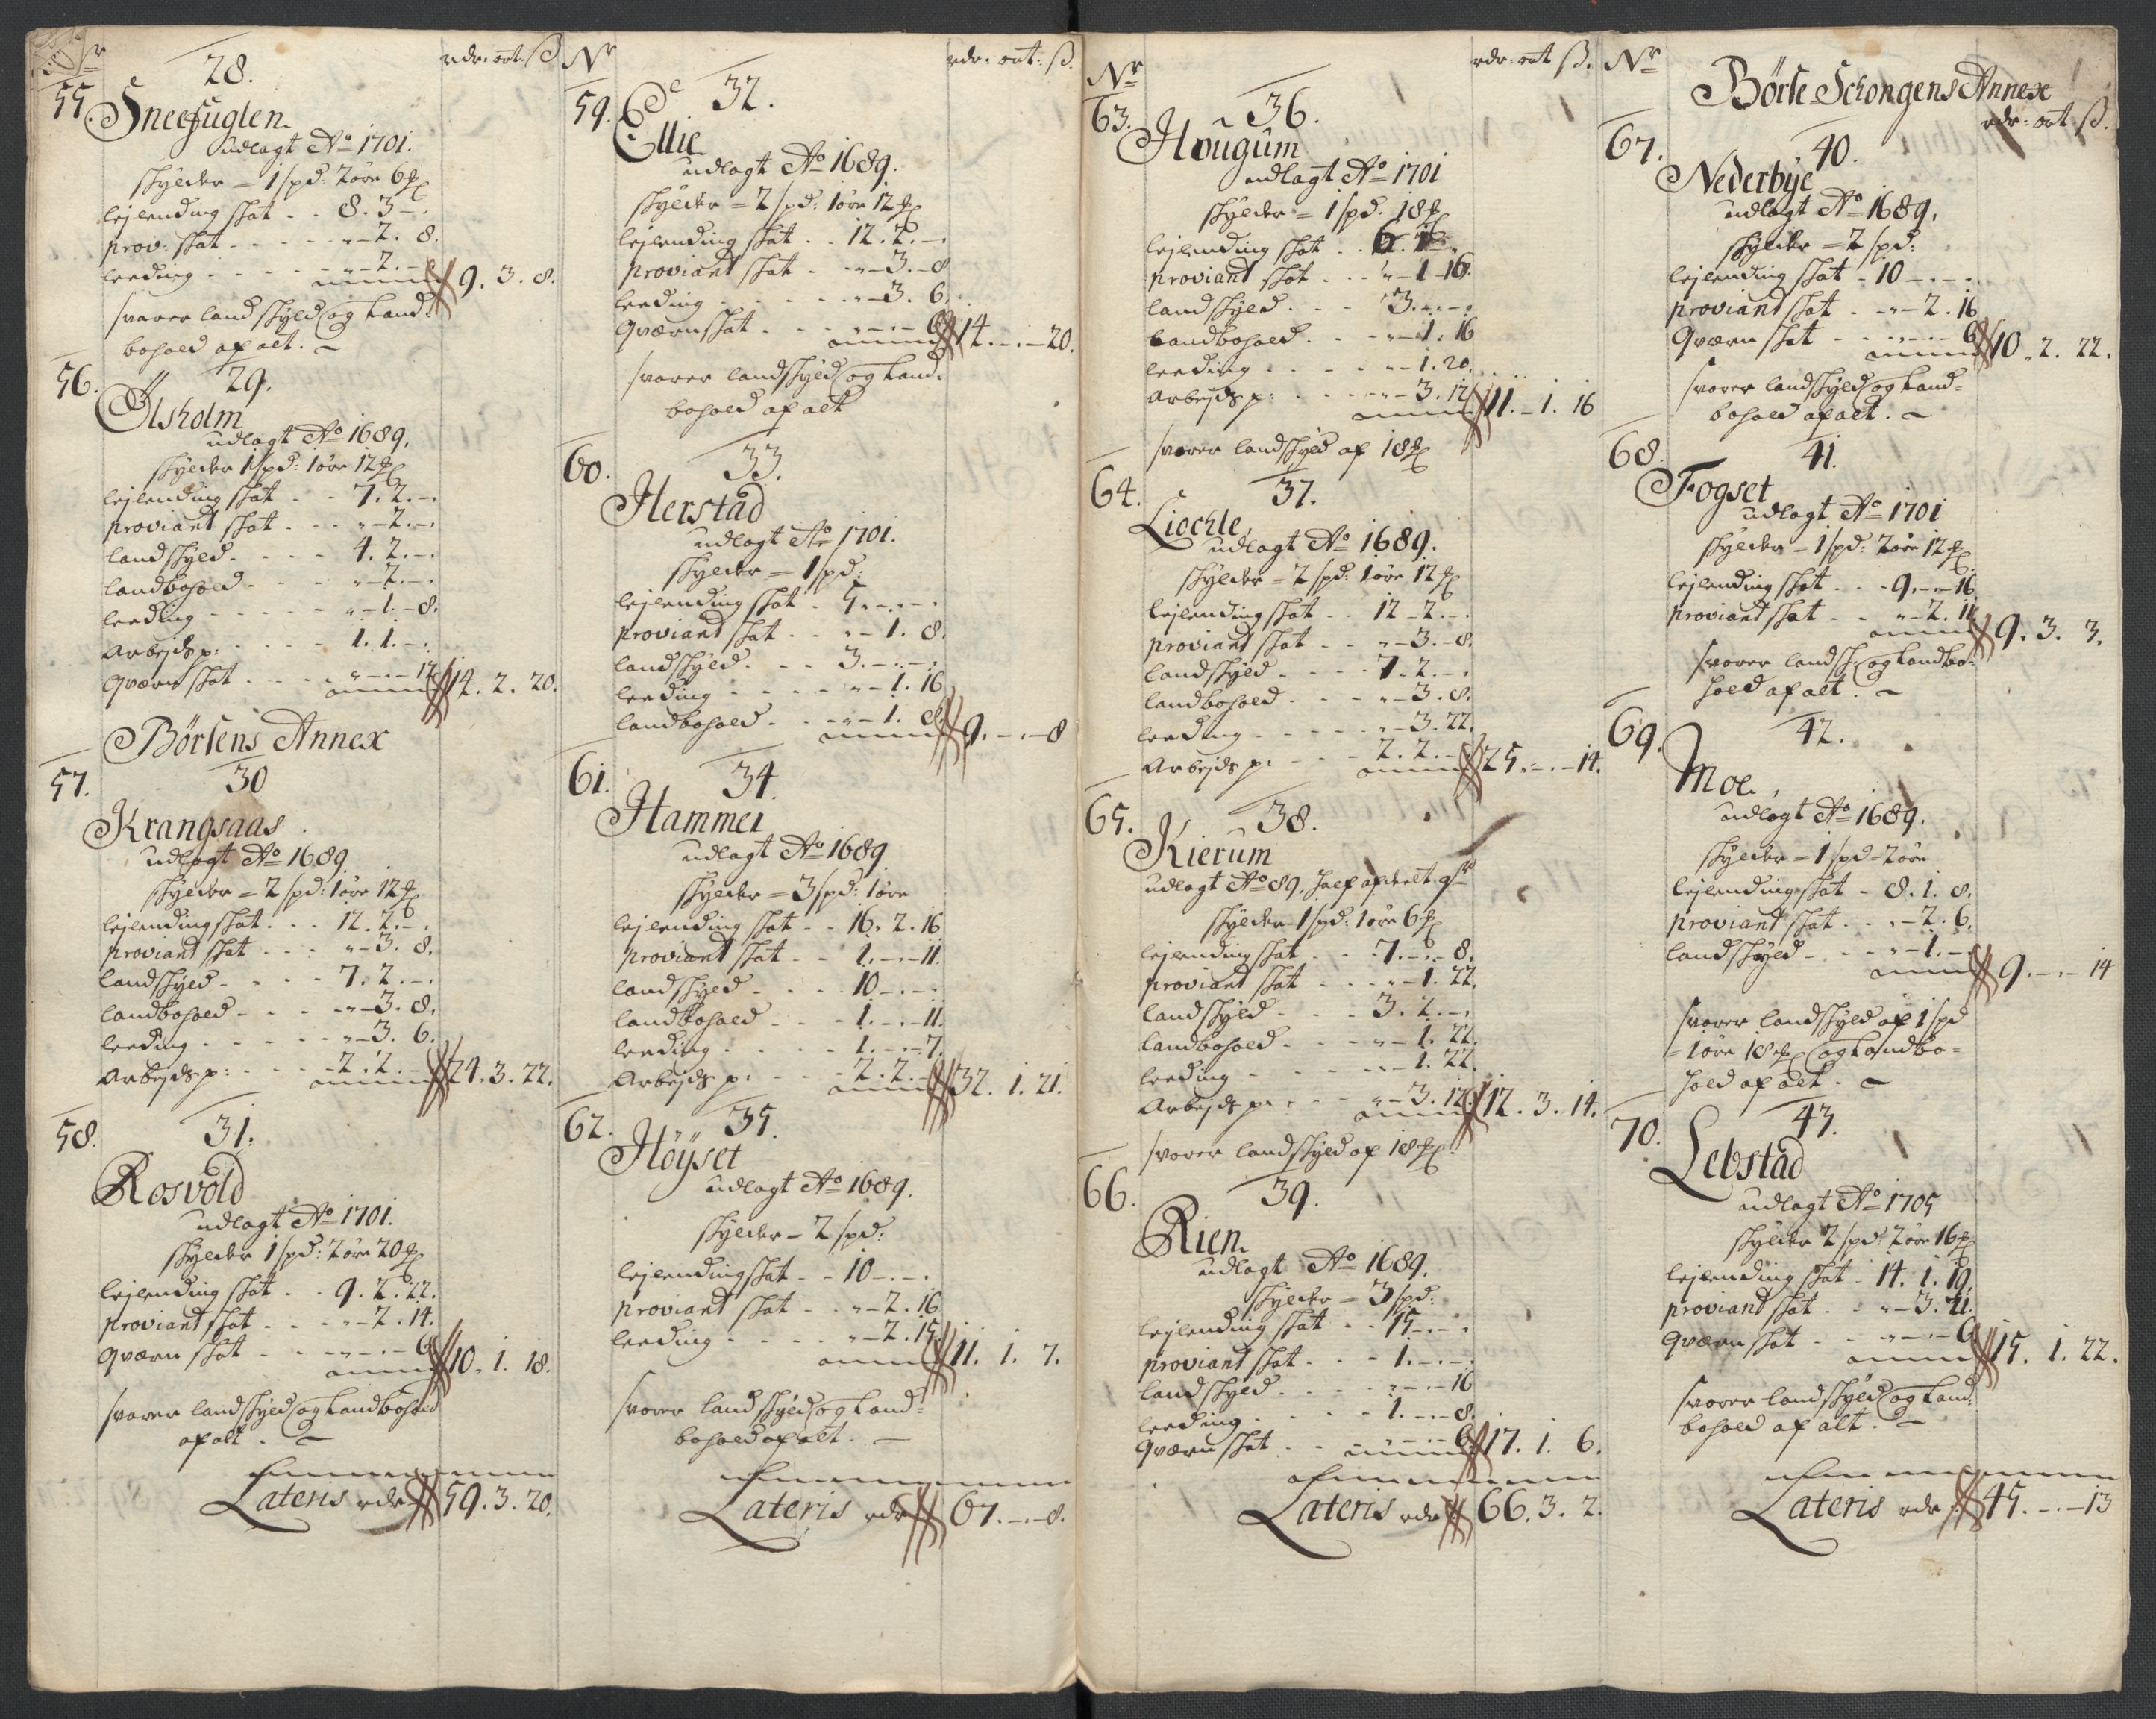 Nr
rdr: ort. ß
55
28.
Sneefuglen
udlagt Ao 1701.
skylder = 1 spd: 2 öre 6 #
lejlending skat . . 8. 3 – .
prov: skat . . . . . „ – 2. 8.
leeding . . . . . „ – 2. –
9. 3. 8.
svarer landskyld og land:
bohold af alt. –
56.
29.
Ölsholm
udlagt Ao 1689.
skylder 1 spd: 1 öre 12 #
lejlending skat . . 7. 2. – .
proviant skat . . . „ – 2. – .
landskyld . . . . 4. 2. – .
landbohold . . . „ – 2. – .
leeding . . . . . „ – 1. – 8.
Arbejds p: . . . . 1. 1. – .
Qværn skat . . . . „ – „ – 12
14. 2. 20.
Börsens Annex
57.
30
Krangsaas
udlagt Ao 1689
skylder = 2 spd: 1 öre 12 #
lejlending skat . . . 12. 2. – .
proviant skat . . . „ – 3. 8.
landskyld – . . . 7. 2. – .
landbohold – . . „ – 3. 8.
leeding . . . . . „ – 3. 6.
Arbejds p: . . . . 2. 2. –
24. 3. 22.
58.
31.
Rosvold
udlagt Ao 1701.
skylder 1 spd: 2 öre 20 #
lejlending skat . . 9. 2. 22.
proviant skat . . . . „ – 2. 14.
Qværn skat . . „ – „ – 6
10. 1. 18.
svarer landskyld og landbohold
af alt . –
Lateris rdr 59. 3. 20.
Nr
rdr: ort: ß.
59.
32.
Ellie
udlagt Ao 1689.
skylder = 2 spd: 1 öre 12 #
lejlending skat . . 12. 2. – .
proviant skat . . „ – 3. – 8
leeding . . . . . „ – 3. 6.
Qværn skat . . . „ – „ – 6
14. – . – 20.
svarer landskyld og land:
bohold af alt
60.
33.
Herstad
udlagt Ao 1701.
skylder = 1 spd:
lejlending skat . 5. – . – .
proviant skat . . „ – 1. 8.
landskyld . . . 3. – . – .
leeding . . . . „ – 1. 16
landbohold . . . „ – 1. 8.
9. – . – 8
61.
34.
Hammer
udlagt Ao 1689
skylder = 3 spd: 1 öre
lejlending skat . . 16. 2. 16
proviant skat . . 1. – . – 11.
landskyld – . . . 10 – . – .
landbohold – . . 1. – . – 11.
leeding . . . . . 1. – . – 7.
Arbejds p: . . . . 2. 2. –
32. 1. 21.
62.
35.
Höyset
udlagt Ao 1689.
skylder – 2 spd:
lejlending skat . . 10 – . – .
proviant skat . . „ – 2. 16
leeding . . . . „ – 2. 15
11. 1. 7.
svarer landskyld og land:
bohold af alt . –
Lateris rdr 67. – . – 8.
Nr
rdr: ort ß.
63.
36.
Hougum
udlagt Ao 1701
skylder = 1 spd. 18 #
lejlending skat . .
proviant skat . . . „ – 1 – 16.
landskyld . . . 3. – . – .
Landbohold . . . „ – 1. 16
leeding . . . . . „ – 1. 20.
Arbejds p: . . . . „ – 3. 12
11. – 1. 16
svarer landskyld af 18 #
64.
37.
Liochle
udlagt Ao 1689.
skylder = 2 spd: 1 öre 12 #
lejlending skat . . 12 – 2. – .
proviant skat . . „ – 3. – 8.
landskyld . . . . 7. 2. – .
landbohold . . . „ – 3. 8.
leeding . . . . . „ – 3. 22.
Arbejds p: . . . 2. 2. –
25. – . – 14.
65.
38.
Kierum
udlagt Ao 89,
skylder 1 spd: 1 öre 6 #
lejlending skat . . 7. – . – 8.
proviant skat . . . „ – 1. 22.
landskyld . . . . 3. 2. – .
landbohold . . . „ – 1. 22.
leeding . . . . „ – 1. 22.
Arbejds p: . . . „ – 3. 12
12. 3. 14.
svarer landskyld af 18 #
66.
39.
Rien
udlagt Ao 1689.
skylder – 3 spd:
lejlending skat . . 15 – . – .
proviant skat . . . 1. – . – .
landskyld . . . . „ – „ – 16
leeding . . . . . 1. – . – 8.
Qværn skat . . „ – „ – 6
17. 1. 6.
Lateris rdr 66. 3. 2.
Nr
Börse Schongens Annex
rdr: ort ß.
67.
40.
Nederbye
udlagt Ao 1689.
skylder = 2 spd:
lejlending skat . 10 – . – .
proviant skat . . „ – 2. 16
Qværn skat . . „ – „ – 6
10. 2. 22.
svarer landskyld og land=
bohold af alt . –
68.
41.
Fogset
udlagt Ao 1701
skylder – 1 spd: 2 öre 12 #
lejlending skat . . . 9. – . – 16.
proviant skat . . „ – 2. 11
9. 3. 3.
svarer landsk: og landbo=
hold af alt . –
69.
42.
Moe
udlagt Ao 1689.
skylder – 1 spd – 2 öre
lejlending skat – 8. 1. 8.
proviant skat . . „ – 2. 6.
landskyld – . . . „ – 1. –
9. – . – 14
svarer landskyld af 1 spd
= 1 öre 18 # og landbo=
hold af alt . –
70.
43.
Lebstad
udlagt Ao 1705
skylder 2 spd: 2 öre 16 #
lejlending skat . 14. 1. 19.
proviant skat . . „ – 3. 21.
Qværn skat . . „ – „ – 6
15. 1. 22.
svarer landskyld og land:
bohold af alt . –
Lateris rdr 45. – . – 13